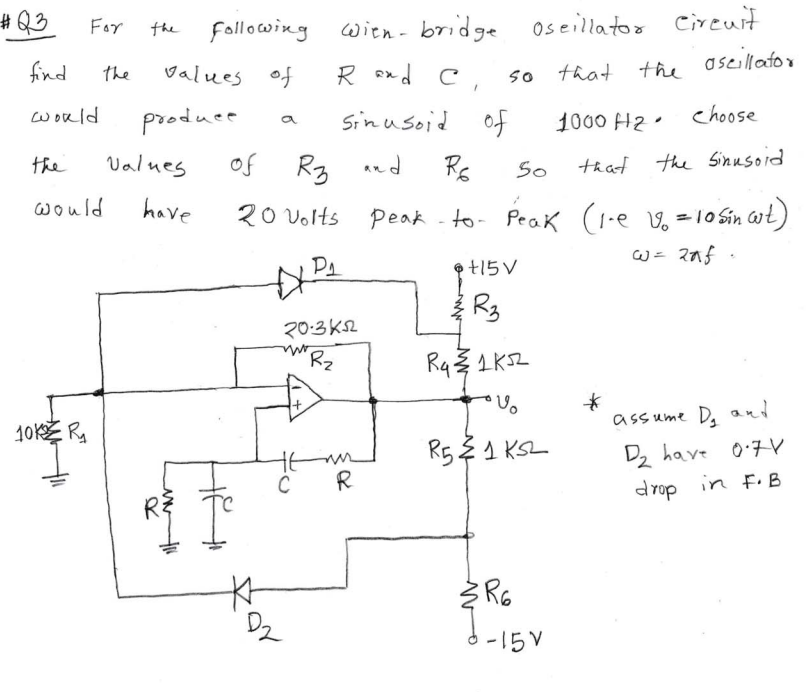 #Q3 For the following Wien-bridge oscillator circuit
find the values of R and C, so that the oscillator
would produce a sinusoid of 1000 Hz. Choose
the values of R3 and R6 so that the sinusoid
would have 20 Volts Peak-to-Peak (i-e v₀ = 10 Sin ωt)
ω = 2πf.
D1
+15V
R3
20.3KΩ
R2
R4 1KΩ
-
+
v₀
* assume D1 and
10KΩ R1
R5 1KΩ
D2 have 0.7V
drop in F.B
C
R
R
C
R6
D2
-15V